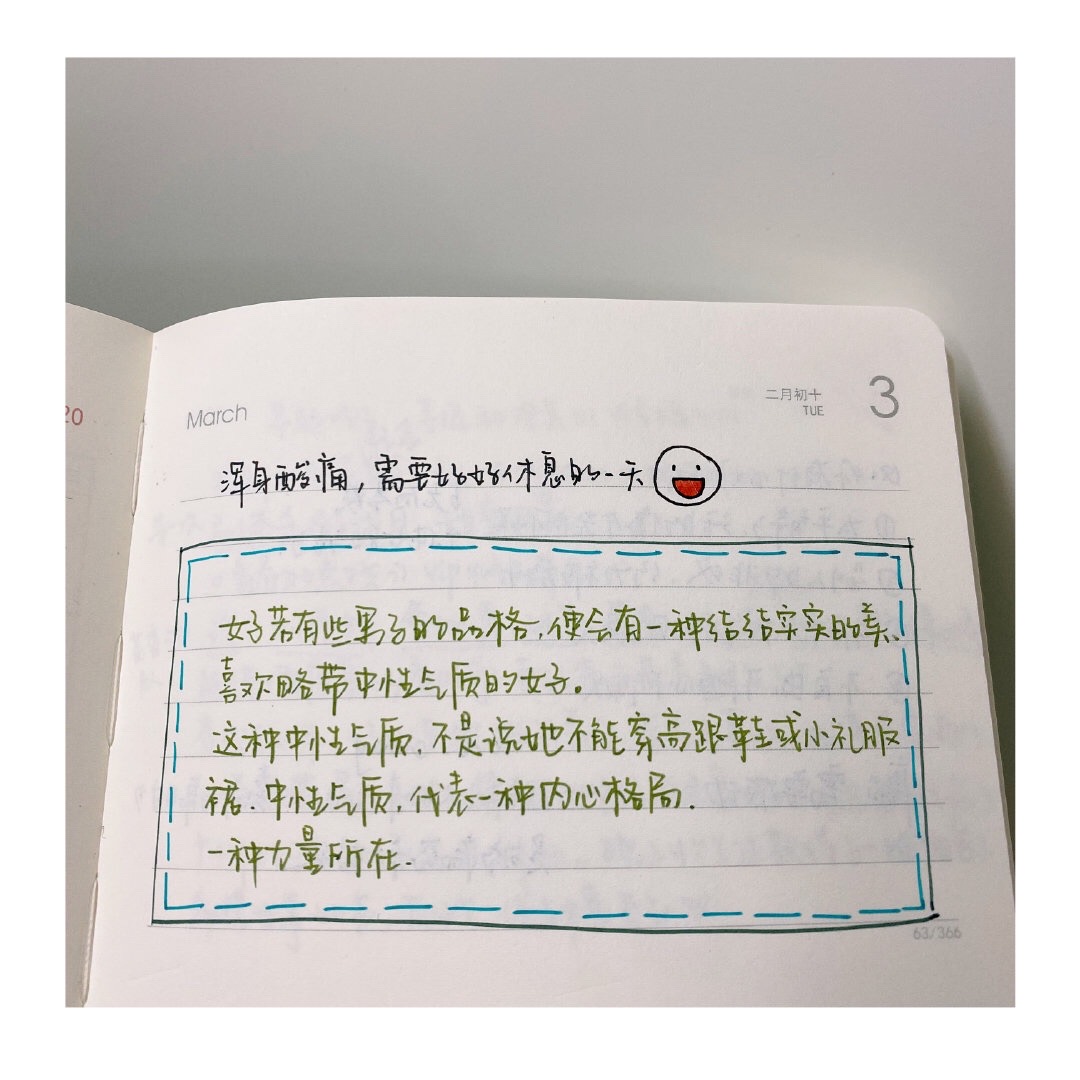 20
March
二月初十
TUE
3
浑身酸痛，需要好好休息的一天
女子若有些男子的品格，便会有一种结结实实的美、
喜欢略带中性气质的女子。
这种中性气质，不是说她不能穿高跟鞋或小礼服
裙．中性气质，代表一种内心格局．
一种力量所在．
63/366